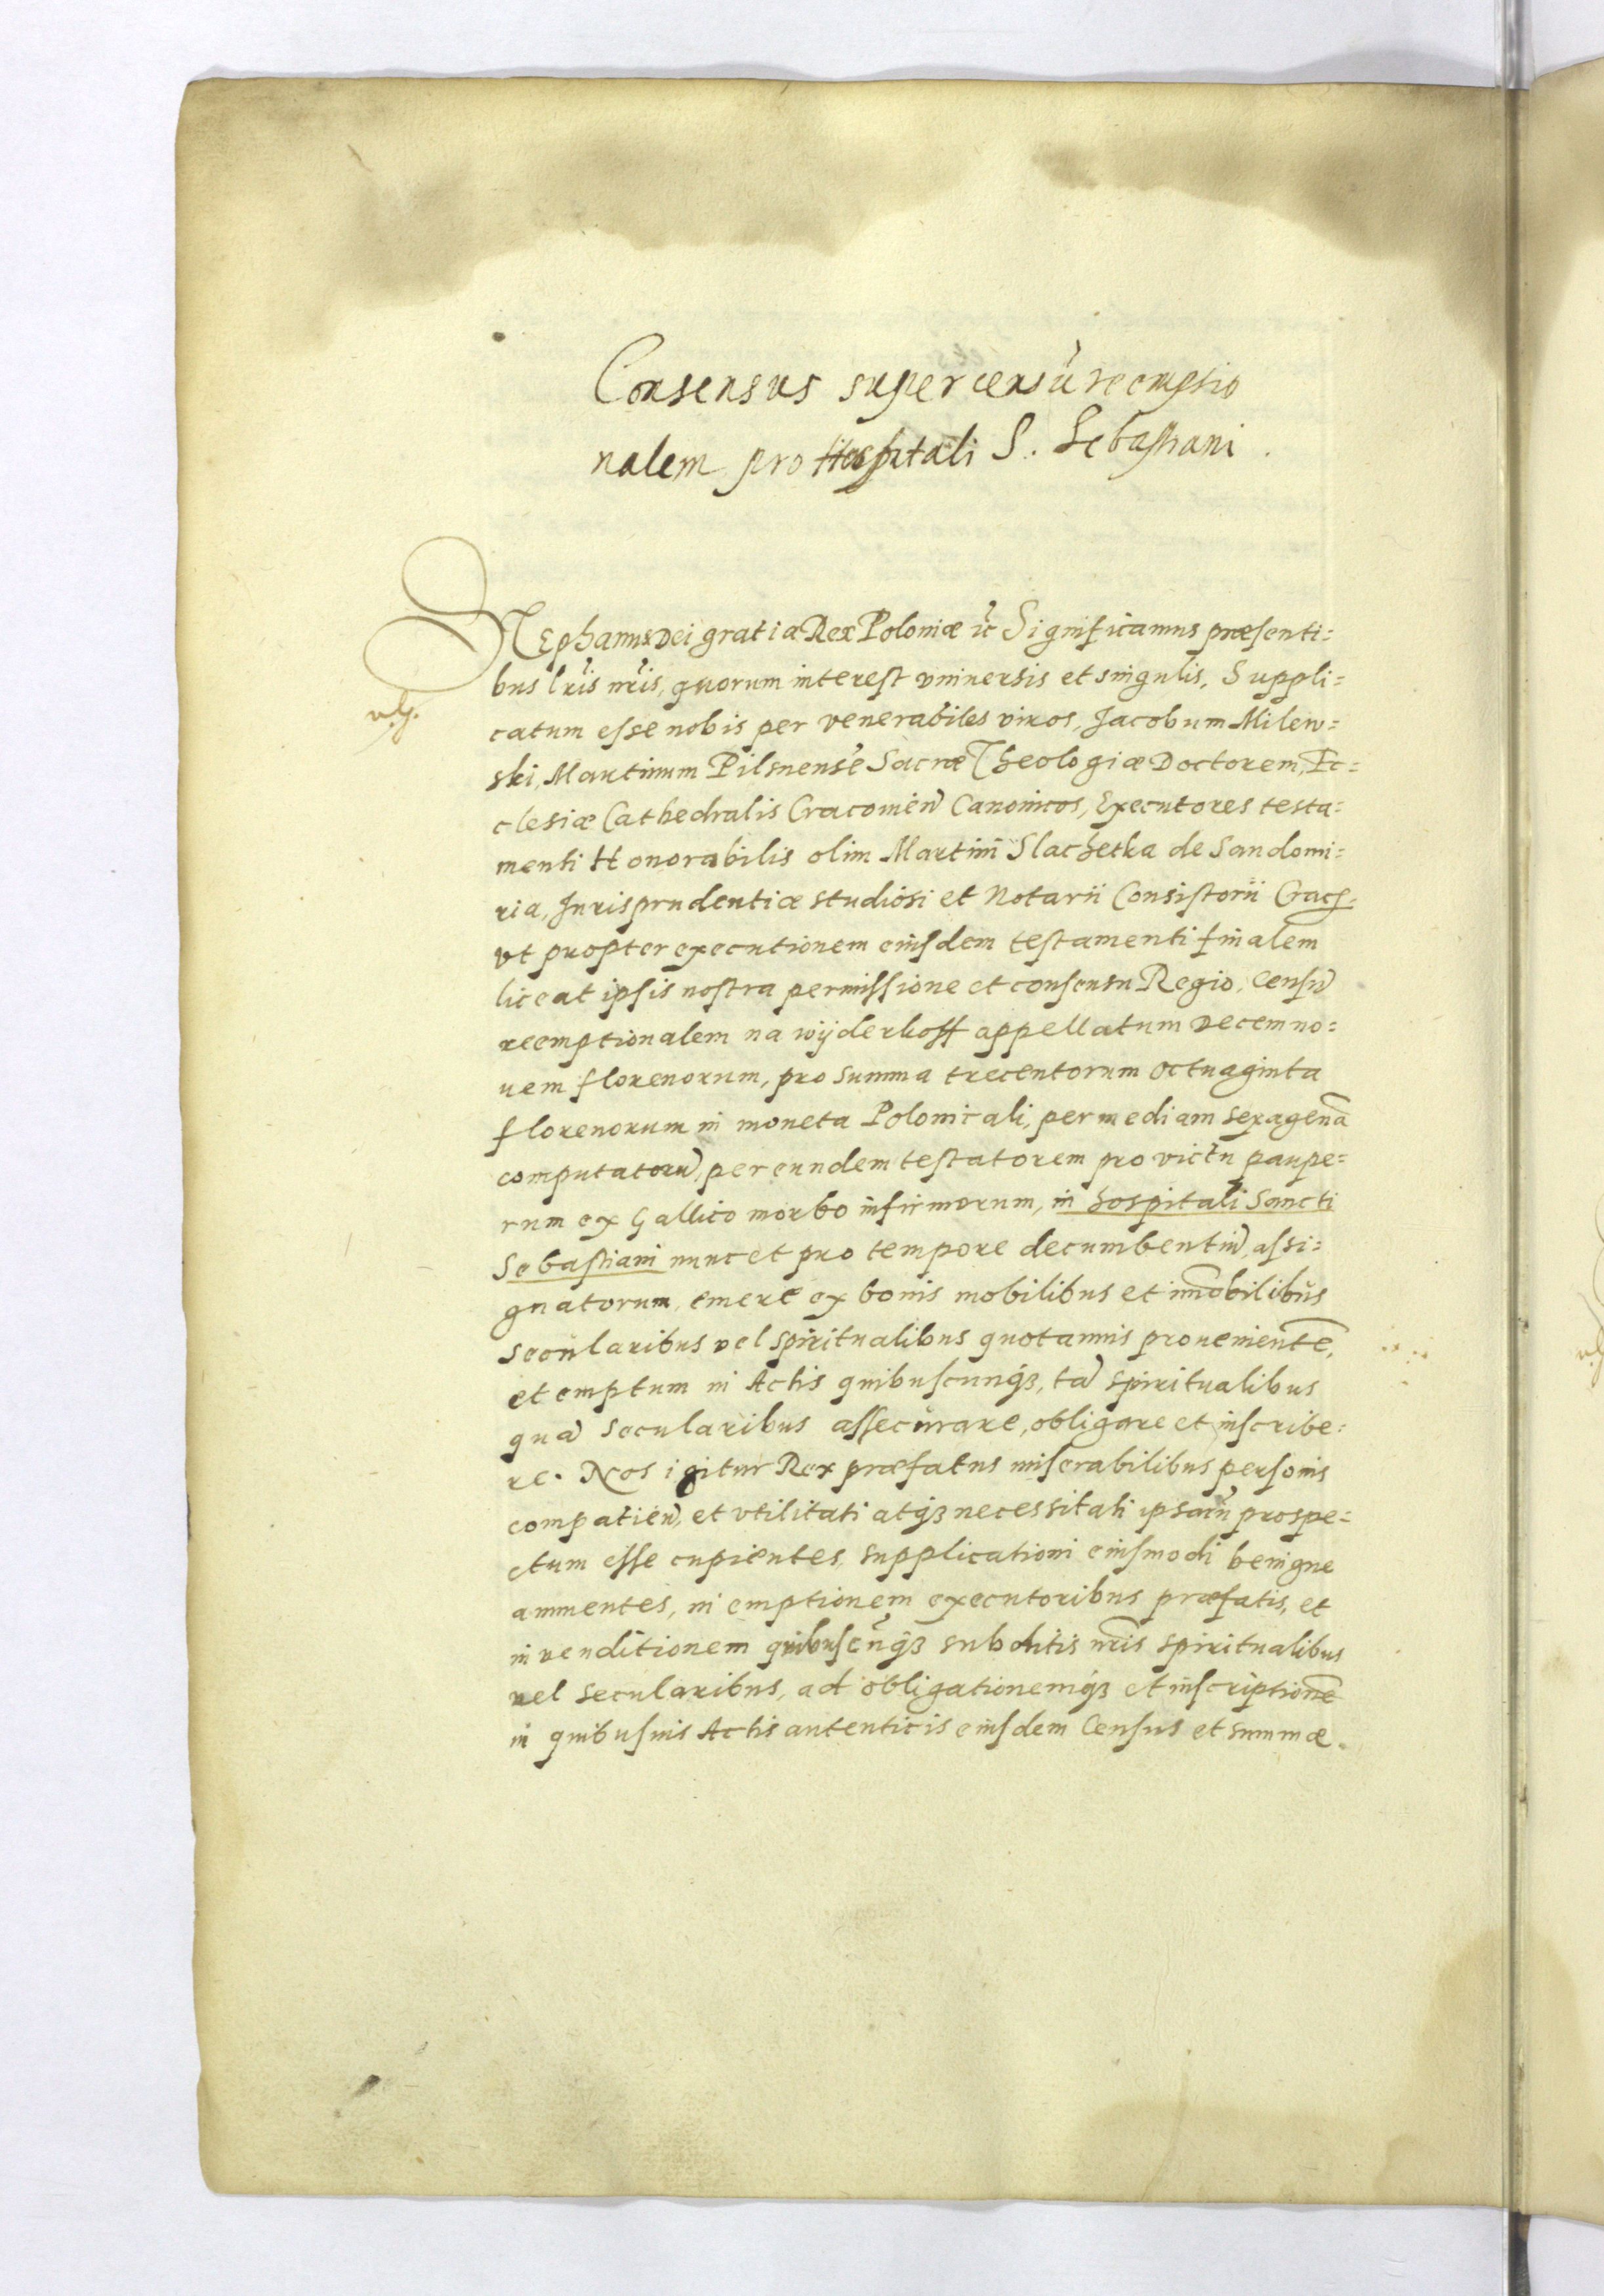 Consensus super censũ reemptio
nalem pro Hospitali S. Sebastiani.
Stephanus Dei gratia Rex Poloniæ ic̃ Significamus præsenti=
bus lr̃is nr̃is, quorum interest vniuersis et singulis, Suppli=
catum esse nobis per venerabiles viros, Jacobum Milew=
ski, Martinum Pilsnensẽ Sacræ Theologiæ Doctorem, Ec=
clesiæ Cathedralis Cracouieñ Canonicos, Executores testa=
menti Honorabilis olim Martini Slachetka de Sandomi=
ria, Jurisprudentiæ studiosi et Notarii Consistorii Crac̃.
vt propter executionem eiusdem testamenti finalem
liceat ipsis nostra permissione et consensu Regio, Censũ
reemptionalem na wÿderkoff appellatum decem no=
uem florenorum, pro summa trecentorum octuaginta
florenorum in moneta Polonicali, per mediam sexagenã
computatorũ, per eundem testatorem pro victu paupe=
rum ex Gallico morbo infirmorum, in hospitali Sancti
Sebastiani nunc et pro tempore decumbentiũ, assi=
gnatorum, emere ex bonis mobilibus et im̃obilibus
secularibus vel spiritualibus quotannis prouenientẽ,
et emptum in Actis quibuscunqꝫ, tã spiritualibus
quã secularibus assecurare, obligare et inscribe=
re. Nos igitur Rex præfatus miserabilibus personis
compatieñ, et vtilitati atqꝫ necessitati ipsarũ prospe=
ctum esse cupientes, supplicationi eiusmodi benigne
annuentes, in emptionem executoribus præfatis, et
in venditionem quibuscũqꝫ subditis nr̃is spiritualibus
vel secularibus, ad obligationemqꝫ et inscriptionẽ
in quibusuis Actis autenticis eiusdem Census et summæ.